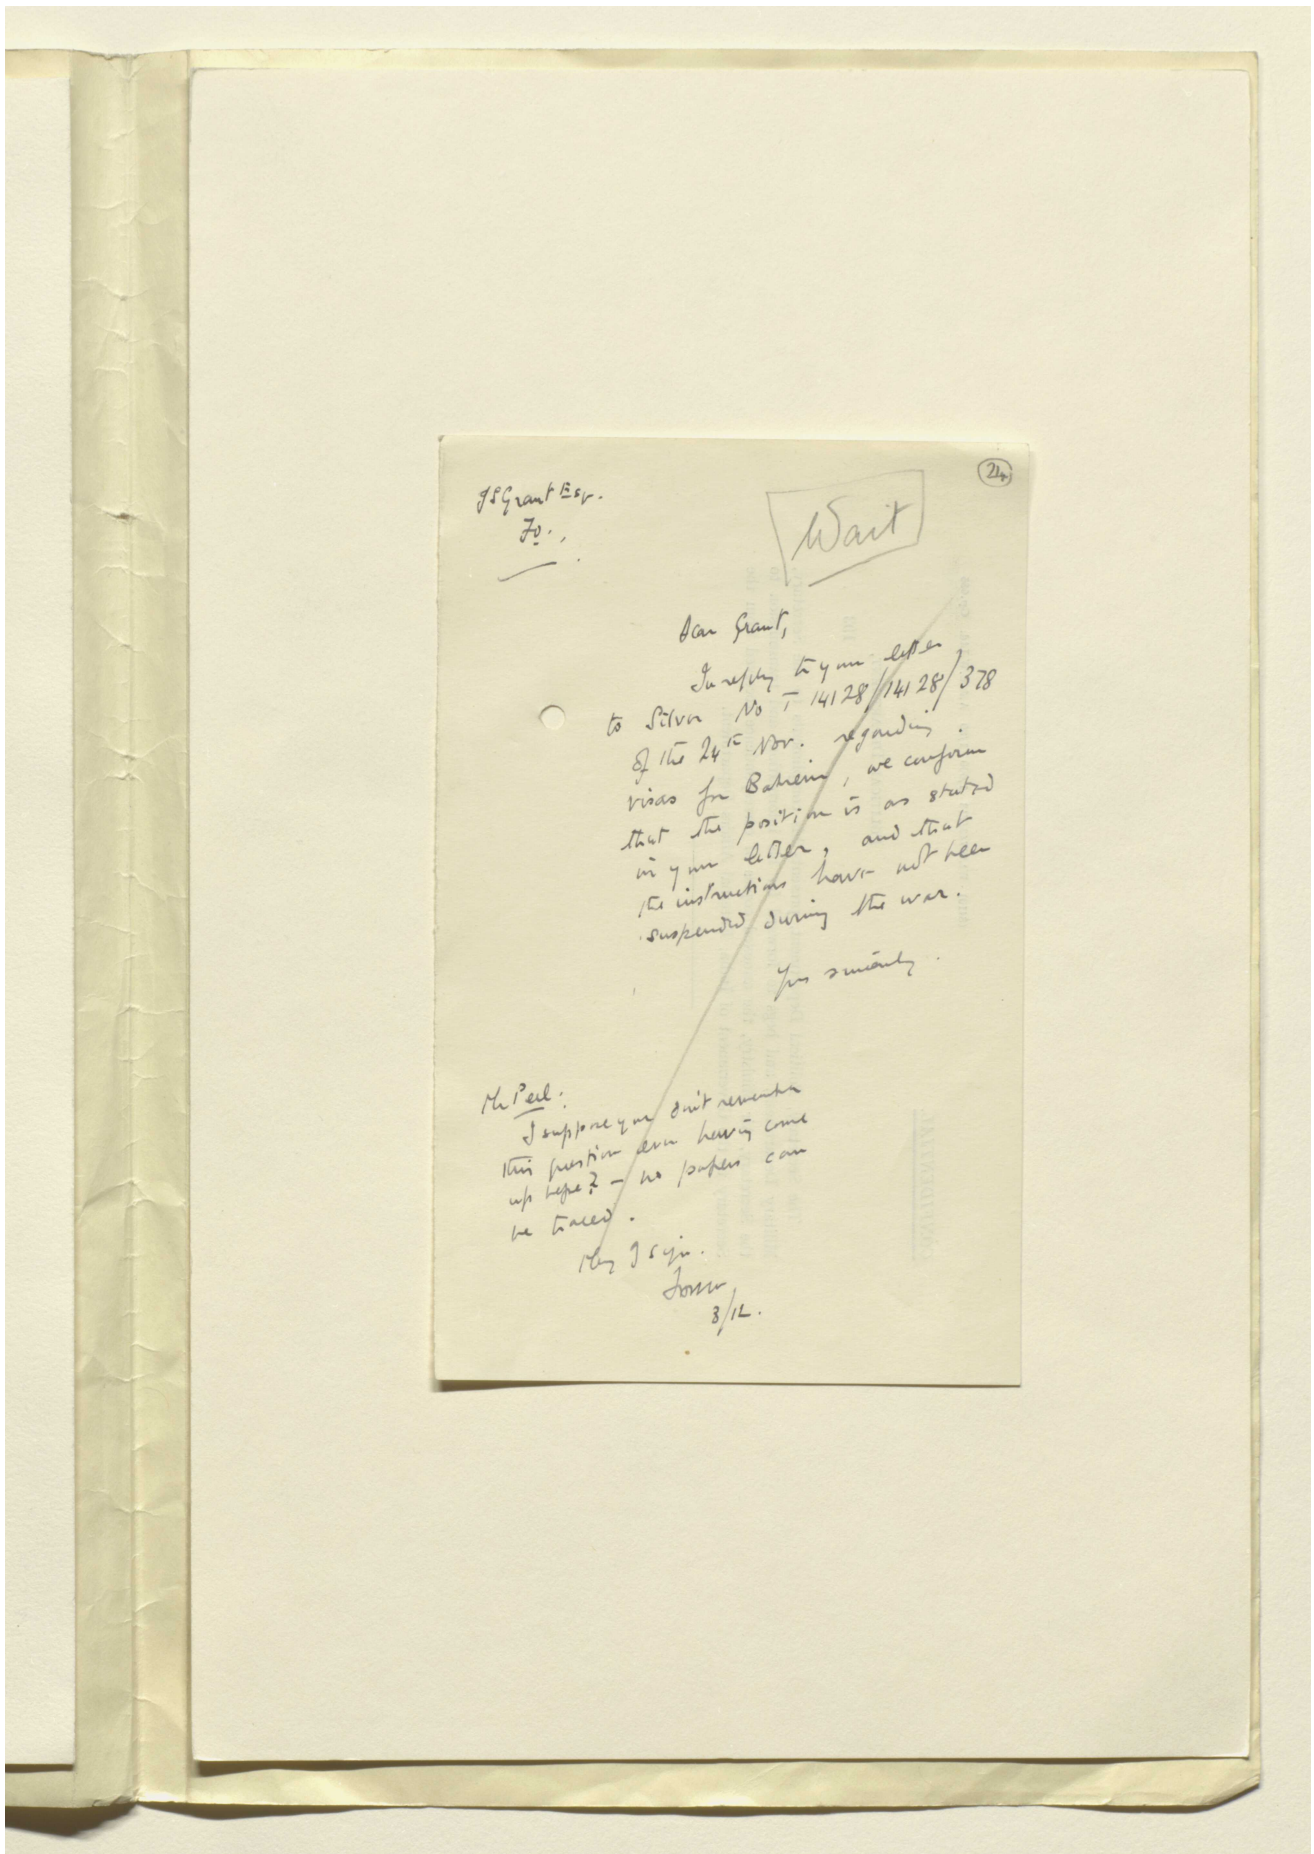 24
Wait
J S Grant Esqr.
F.O.
Dear Grant,
In reply to your letter
to Silver No T 14128/14128/378
of the 24th Nov. regarding
visas for Bahrein, we confirm
that the position is as stated
in your letter, and that
the instructions have not been
suspended during the war.
Yrs sincerely.
Mr Peel.
I suppose you don't remember
this question ever having come
up before? – no papers can
be traced.
May I sign.
3/12.